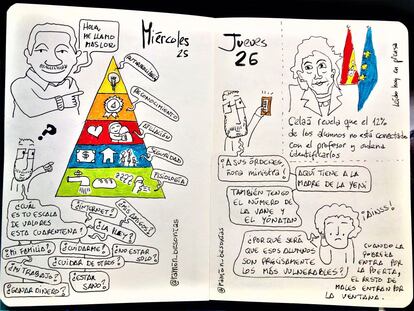 Hola,
me llamo
Maslow
Miércoles
25
autorrealización
reconocimiento
afiliación
seguridad
fisiología
????
?
¿Cuál
es tu escala
de valores
esta cuarentena?
¿Internet?
¿Mis amigos?
¿La play?
¿Mi familia?
¿Cuidarme?
¿No estar
solo?
¿Cuidar de otros?
¿Mi trabajo?
¿Estar
sano?
¿Ganar dinero?
@ramón_besonías
Jueves
26
Leído hoy en prensa
Celaá revela que el 12%
de los alumnos no está conectado
con el profesor y ordena
identificarlos
¡A sus órdenes
ministra!
Aquí tiene a la
madre de la Yeni
También tengo
el número de
la Vane y el
Yonatan
¡Ainss!
¿Por qué será
que esos alumnos
son precisamente
los más vulnerables?
Cuando la
pobreza
entra por
la puerta,
el resto de
males entra por
la ventana.
@ramón_besonías